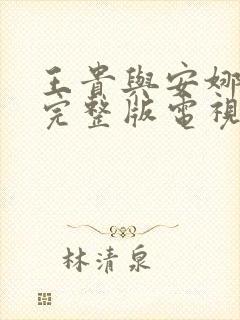 王貴與安娜
完整版電視
林清泉